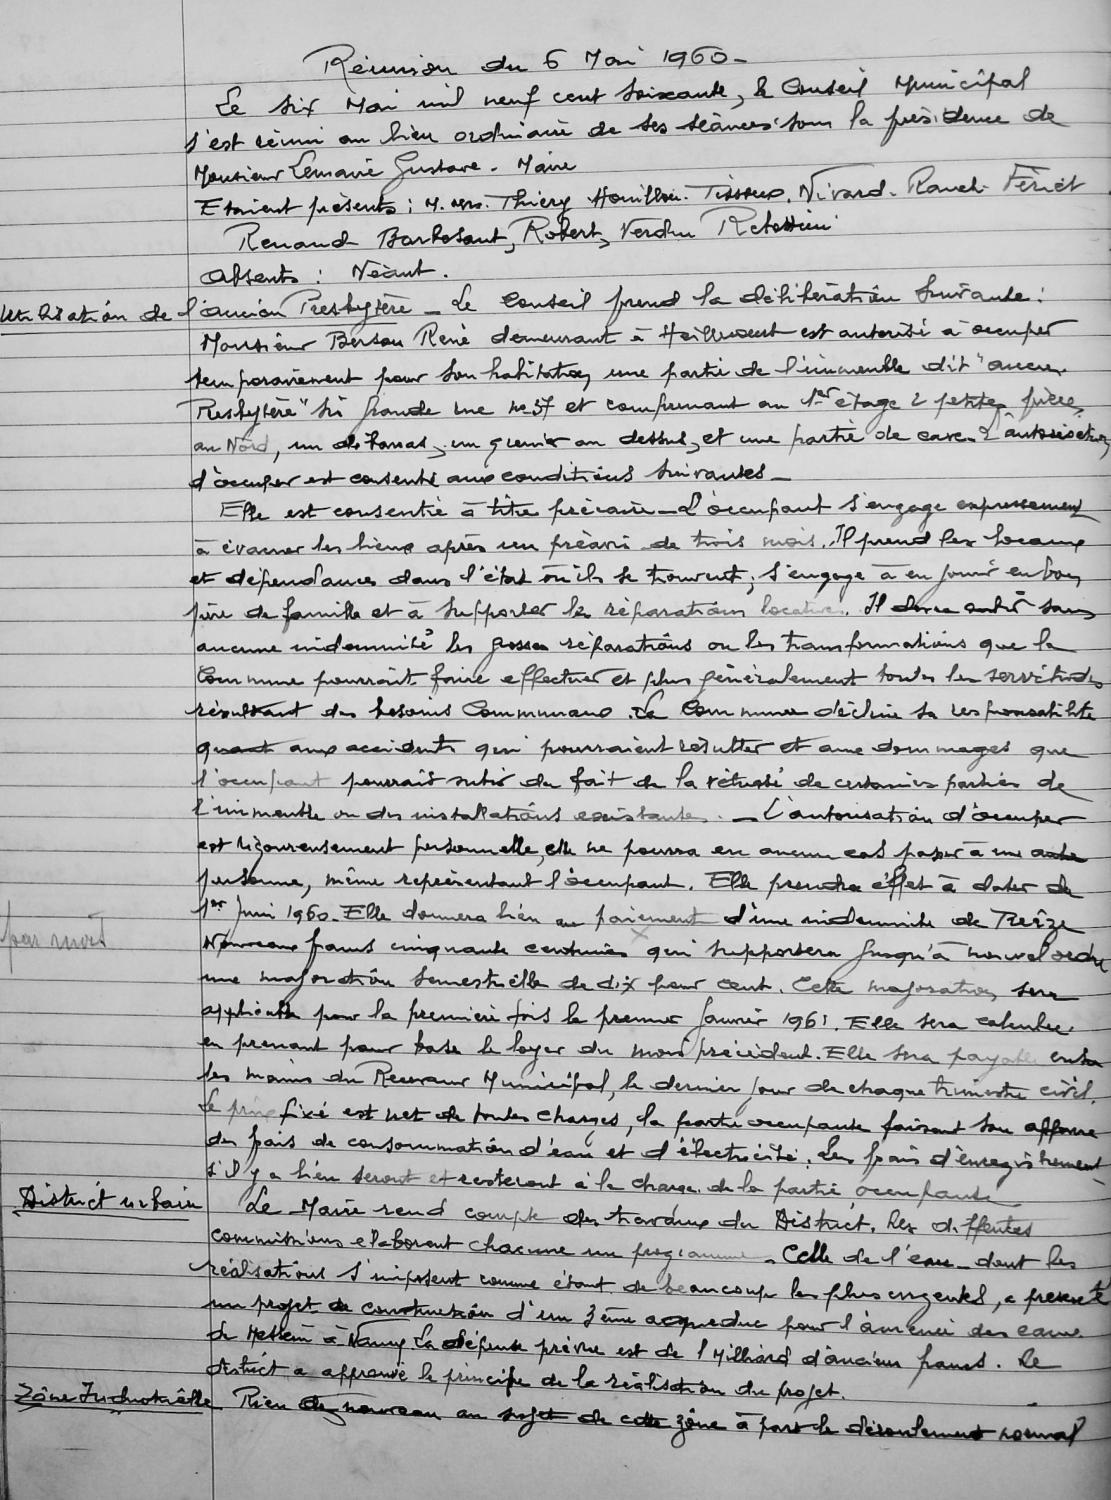 Réunion du 6 Mai 1960 -
Le six Mai mil neuf cent soixante, le Conseil Municipal
s'est réuni au lieu ordinaire de ses séances sous la présidence de
Monsieur Lemarié Gustave - Maire
Etaient présents : M. Mrs. Thiéry Houillon. Tisseux. Nivard - Rauch - Fériet
Renaud Barbesant, Robert, Verdun
Absents : Néant.
Utilisation de l'ancien Presbytère - Le Conseil prend la délibération suivante :
Monsieur Bersou René demeurant à Heillecourt est autorisé à occuper
temporairement pour son habitation, une partie de l'immeuble dit "ancien
Presbytère" sis grande rue n° 37 et comprenant au 1er étage 2 petites pièces
au Nord, un débarras, un grenier au dessus, et une partie de cave. L'autorisation
d'occuper est consentie aux conditions suivantes -
Elle est consentie à titre précaire - L'occupant s'engage expressement
à évacuer les lieux après un préavis de trois mois. Il prend les locaux
et dépendances dans l'état où ils se trouvent, s'engage à en jouir en bon
père de famille et à supporter les réparations locatives. Il devra subir sans
aucune indemnité les grosses réparations ou les transformations que la
Commune pourrait faire effectuer et plus généralement toutes les servitudes
résultant des besoins Communaux. La Commune décline sa responsabilité
quant aux accidents qui pourraient résulter et aux dommages que
l'occupant pourrait subir du fait de la vétusté de certaines parties de
l'immeuble ou des installations existantes. - L'autorisation d'occuper
est rigoureusement personnelle, elle ne pourra en aucun cas passer à une autre
personne, même représentant l'occupant. Elle prendra effet à dater du
1er Juin 1960 - Elle donnera lieu au paiement d'une indemnité de Treize
par mois
Nouveaux francs cinquante centimes qui supportera jusqu'à nouvel ordre
une majoration semestrielle de dix pour cent. Cette majoration sera
applicable pour la première fois le premier Janvier 1961. Elle sera calculée
en prenant pour base le loyer du mois précédent. Elle sera payable entre
les mains du Receveur Municipal, le dernier jour de chaque trimestre civil.
Le prix fixé est net de toutes charges, la partie occupante faisant son affaire
des frais de consommation d'eau et d'électricité. Les frais d'enregistrement
s'il y a lieu seront et resteront à la charge de la partie occupante
District urbain
Le Maire rend compte des travaux du District. Les diffentes
commissions elaborent chacune un programme - Celle de l'eau - dont les
réalisations s'imposent comme étant de beaucoup les plus urgentes, a présenté
un projet de construction d'un 3ème aqueduc pour l'amenée des eaux
de Messein à Nancy La dépense prévue est de 1 Milliard d'anciens francs. Le
district a approuvé le principe de la réalisation du projet.
Zône Industrielle Rien de nouveau au sujet de cette zône à part le déroulement normal